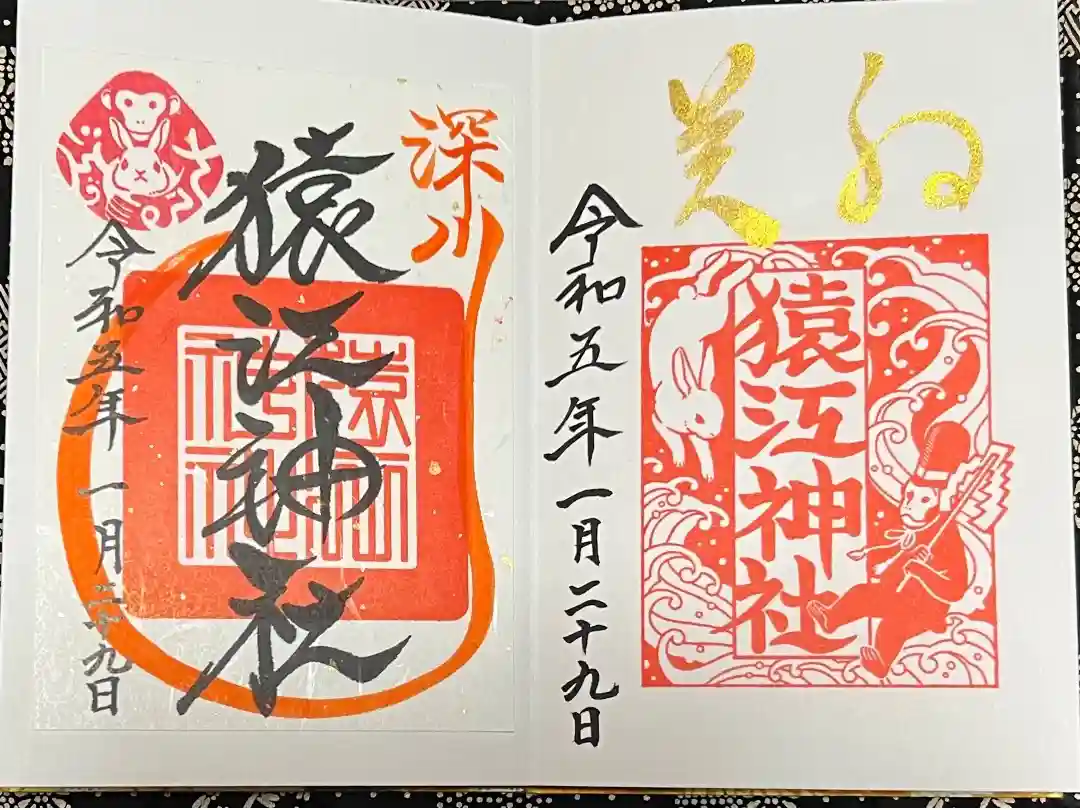 猿江神社
令和五年一月二十九日
深川
猿江神社
猿江
神社
令和五年一月二十九日